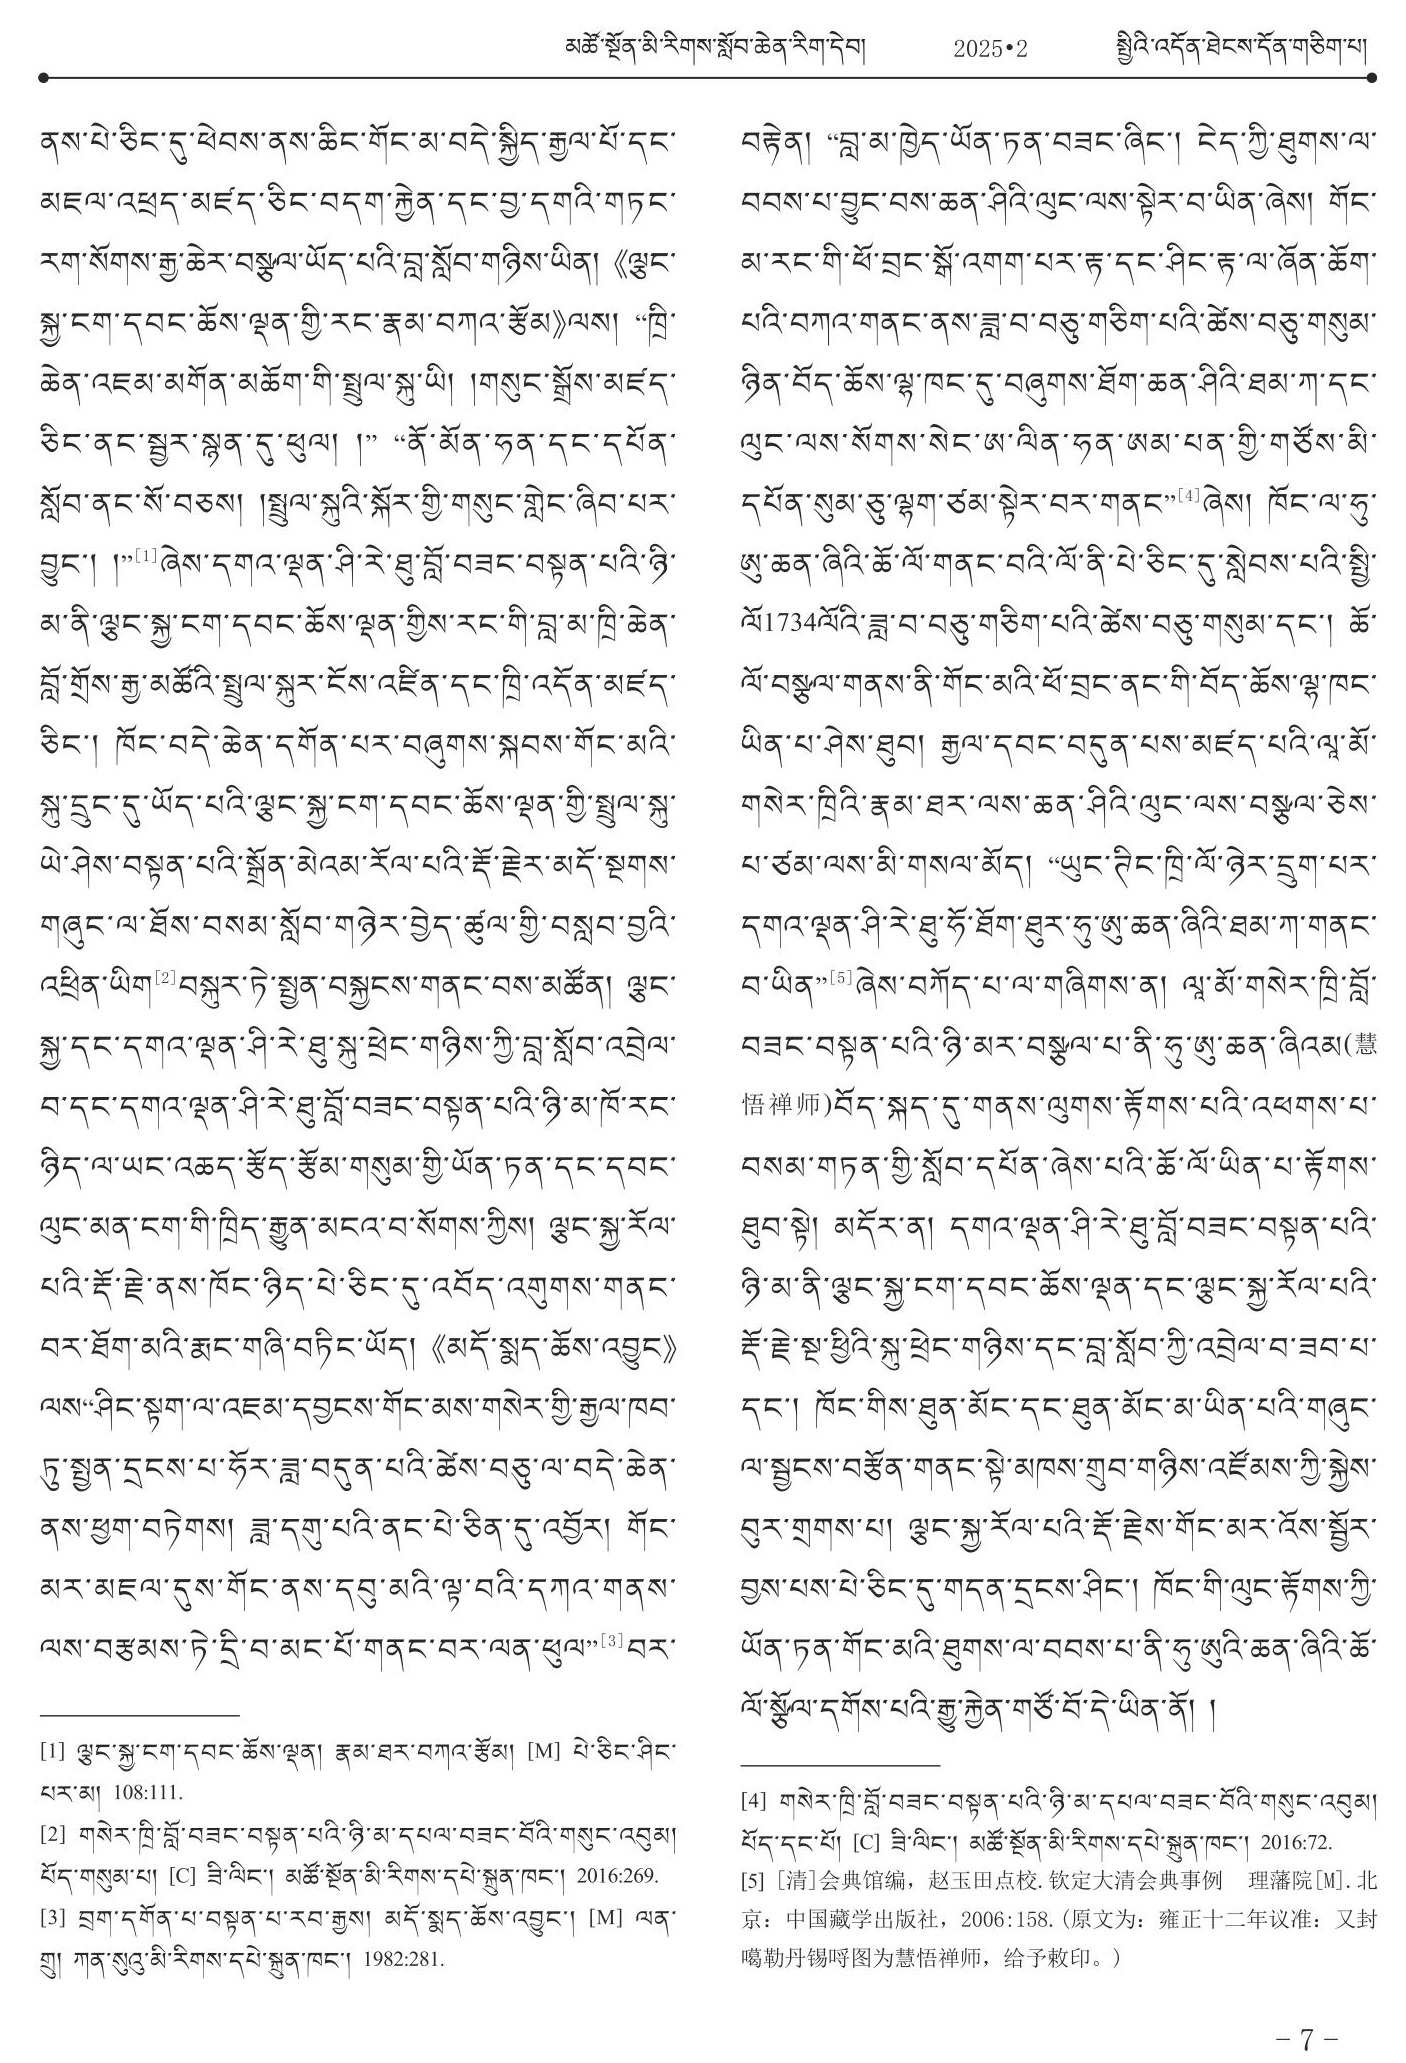 མཚོ་སྔོན་མི་རིགས་སློབ་ཆེན་རིག་དེབ། 2025•2 སྤྱིའི་འདོན་ཐེངས་དོན་གཅིག་པ།
ནས་པེ་ཅིང་དུ་ཕེབས་ནས་ཆིང་གོང་མ་བདེ་སྐྱིད་རྒྱལ་པོ་དང་
མཇལ་འཕྲད་མཛད་ཅིང་བདག་རྐྱེན་དང་བྱ་དགའི་གཏང་
རག་སོགས་རྒྱ་ཆེར་བསྩལ་ཡོད་པའི་བླ་སློབ་གཉིས་ཡིན། 《ལྕང་
སྐྱ་ངག་དབང་ཆོས་ལྡན་གྱི་རང་རྣམ་བཀའ་རྩོམ》ལས། “ཁྲི་
ཆེན་འཇམ་མགོན་མཆོག་གི་སྤྲུལ་སྐུ་ཡི། །གསུང་སྒྲོས་མཛད་
ཅིང་ནང་སྦྱར་སྙན་དུ་ཕུལ། །” “ནོ་མོན་ཧན་དང་དཔོན་
སློབ་ནང་སོ་བཅས། །སྤྲུལ་སྐུའི་སྐོར་གྱི་གསུང་གླེང་ཞིབ་པར་
བྱུང་། །”[1]ཞེས་དགའ་ལྡན་ཤི་རེ་ཐུ་བློ་བཟང་བསྟན་པའི་ཉི་
མ་ནི་ལྕང་སྐྱ་ངག་དབང་ཆོས་ལྡན་གྱིས་རང་གི་བླ་མ་ཁྲི་ཆེན་
བློ་གྲོས་རྒྱ་མཚོའི་སྤྲུལ་སྐུར་ངོས་འཛིན་དང་ཁྲི་འདོན་མཛད་
ཅིང་། ཁོང་བདེ་ཆེན་དགོན་པར་བཞུགས་སྐབས་གོང་མའི་
སྐུ་དྲུང་དུ་ཡོད་པའི་ལྕང་སྐྱ་ངག་དབང་ཆོས་ལྡན་གྱི་སྤྲུལ་སྐུ་
ཡེ་ཤེས་བསྟན་པའི་སྒྲོན་མེའམ་རོལ་པའི་རྡོ་རྗེར་མདོ་སྔགས་
གཞུང་ལ་ཐོས་བསམ་སློབ་གཉེར་བྱེད་ཚུལ་གྱི་བསླབ་བྱའི་
འཕྲིན་ཡིག[2]བསྐུར་ཏེ་སྤྱན་བསྐྱངས་གནང་བས་མཚོན། ལྕང་
སྐྱ་དང་དགའ་ལྡན་ཤི་རེ་ཐུ་སྐུ་ཕྲེང་གཉིས་ཀྱི་བླ་སློབ་འབྲེལ་
བ་དང་དགའ་ལྡན་ཤི་རེ་ཐུ་བློ་བཟང་བསྟན་པའི་ཉི་མ་ཁོ་རང་
ཉིད་ལ་ཡང་འཆད་རྩོད་རྩོམ་གསུམ་གྱི་ཡོན་ཏན་དང་དབང་
ལུང་མན་ངག་གི་ཁྲིད་རྒྱུན་མངའ་བ་སོགས་ཀྱིས། ལྕང་སྐྱ་རོལ་
པའི་རྡོ་རྗེ་ནས་ཁོང་ཉིད་པེ་ཅིང་དུ་འབོད་འགུགས་གནང་
བར་ཐོག་མའི་རྨང་གཞི་བཏིང་ཡོད། 《མདོ་སྨད་ཆོས་འབྱུང》
ལས“ཤིང་སྟག་ལ་འཇམ་དབྱངས་གོང་མས་གསེར་གྱི་རྒྱལ་ཁབ་
ཏུ་སྤྱན་དྲངས་པ་ཧོར་ཟླ་བདུན་པའི་ཚེས་བཅུ་ལ་བདེ་ཆེན་
ནས་ཕྱག་བཏེགས། ཟླ་དགུ་པའི་ནང་པེ་ཅིན་དུ་འབྱོར། གོང་
མར་མཇལ་དུས་གོང་ནས་དབུ་མའི་ལྟ་བའི་དཀའ་གནས་
ལས་བརྩམས་ཏེ་དྲི་བ་མང་པོ་གནང་བར་ལན་ཕུལ”[3]བར་
[1] ལྕང་སྐྱ་ངག་དབང་ཆོས་ལྡན། རྣམ་ཐར་བཀའ་རྩོམ། [M] པེ་ཅིང་ཤིང་
པར་མ། 108:111.
[2] གསེར་ཁྲི་བློ་བཟང་བསྟན་པའི་ཉི་མ་དཔལ་བཟང་བོའི་གསུང་འབུམ།
པོད་གསུམ་པ། [C] ཟི་ལིང་། མཚོ་སྔོན་མི་རིགས་དཔེ་སྐྲུན་ཁང་། 2016:269.
[3] བྲག་དགོན་པ་བསྟན་པ་རབ་རྒྱས། མདོ་སྨད་ཆོས་འབྱུང་། [M] ལན་
གྲུ། ཀན་སུའུ་མི་རིགས་དཔེ་སྐྲུན་ཁང་། 1982:281.
བརྟེན། “བླ་མ་ཁྱེད་ཡོན་ཏན་བཟང་ཞིང་། ངེད་ཀྱི་ཐུགས་ལ་
བབས་པ་བྱུང་བས་ཆན་ཤིའི་ལུང་ལས་སྟེར་བ་ཡིན་ཞེས། གོང་
མ་རང་གི་ཕོ་བྲང་སྒོ་འགག་པར་རྟ་དང་ཤིང་རྟ་ལ་ཞོན་ཆོག་
པའི་བཀའ་གནང་ནས་ཟླ་བ་བཅུ་གཅིག་པའི་ཚེས་བཅུ་གསུམ་
ཉིན་བོད་ཆོས་ལྷ་ཁང་དུ་བཞུགས་ཐོག་ཆན་ཤིའི་ཐམ་ཀ་དང་
ལུང་ལས་སོགས་སེང་ཨ་ལིན་ཧན་ཨམ་པན་གྱི་གཙོས་མི་
དཔོན་སུམ་ཅུ་ལྷག་ཙམ་སྟེར་བར་གནང”[4]ཞེས། ཁོང་ལ་ཧུ་
ཨུ་ཆན་ཞིའི་ཚོ་ལོ་གནང་བའི་ལོ་ནི་པེ་ཅིང་དུ་སླེབས་པའི་སྤྱི་
ལོ1734ལོའི་ཟླ་བ་བཅུ་གཅིག་པའི་ཚེས་བཅུ་གསུམ་དང་། ཚོ་
ལོ་བསྩལ་གནས་ནི་གོང་མའི་ཕོ་བྲང་ནང་གི་བོད་ཆོས་ལྷ་ཁང་
ཡིན་པ་ཤེས་ཐུབ། རྒྱལ་དབང་བདུན་པས་མཛད་པའི་ལཱ་མོ་
གསེར་ཁྲིའི་རྣམ་ཐར་ལས་ཆན་ཤིའི་ལུང་ལས་བསྩལ་ཅེས་
པ་ཙམ་ལས་མི་གསལ་མོད། “ཡུང་ཀྲིང་ཁྲི་ལོ་ཉེར་དྲུག་པར་
དགའ་ལྡན་ཤི་རེ་ཐུ་ཧོ་ཐོག་ཐུར་ཧུ་ཨུ་ཆན་ཞིའི་ཐམ་ཀ་གནང་
བ་ཡིན”[5]ཞེས་བཀོད་པ་ལ་གཞིགས་ན། ལཱ་མོ་གསེར་ཁྲི་བློ་
བཟང་བསྟན་པའི་ཉི་མར་བསྩལ་པ་ནི་ཧུ་ཨུ་ཆན་ཞིའམ(慧
悟禅师)བོད་སྐད་དུ་གནས་ལུགས་རྟོགས་པའི་འཕགས་པ་
བསམ་གཏན་གྱི་སློབ་དཔོན་ཞེས་པའི་ཚོ་ལོ་ཡིན་པ་རྟོགས་
ཐུབ་སྟེ། མདོར་ན། དགའ་ལྡན་ཤི་རེ་ཐུ་བློ་བཟང་བསྟན་པའི་
ཉི་མ་ནི་ལྕང་སྐྱ་ངག་དབང་ཆོས་ལྡན་དང་ལྕང་སྐྱ་རོལ་པའི་
རྡོ་རྗེ་སྔ་ཕྱིའི་སྐུ་ཕྲེང་གཉིས་དང་བླ་སློབ་ཀྱི་འབྲེལ་བ་ཟབ་པ་
དང་། ཁོང་གིས་ཐུན་མོང་དང་ཐུན་མོང་མ་ཡིན་པའི་གཞུང་
ལ་སྦྱངས་བརྩོན་གནང་སྟེ་མཁས་གྲུབ་གཉིས་འཛོམས་ཀྱི་སྐྱེས་
བུར་གྲགས་པ། ལྕང་སྐྱ་རོལ་པའི་རྡོ་རྗེས་གོང་མར་འོས་སྦྱོར་
བྱས་པས་པེ་ཅིང་དུ་གདན་དྲངས་ཤིང་། ཁོང་གི་ལུང་རྟོགས་ཀྱི་
ཡོན་ཏན་གོང་མའི་ཐུགས་ལ་བབས་པ་ནི་ཧུ་ཨུའི་ཆན་ཞིའི་ཚོ་
ལོ་སྩོལ་དགོས་པའི་རྒྱུ་རྐྱེན་གཙོ་བོ་དེ་ཡིན་ནོ། །
[4] གསེར་ཁྲི་བློ་བཟང་བསྟན་པའི་ཉི་མ་དཔལ་བཟང་བོའི་གསུང་འབུམ།
པོད་དང་པོ། [C] ཟི་ལིང་། མཚོ་སྔོན་མི་རིགས་དཔེ་སྐྲུན་ཁང་། 2016:72.
[5] [清]会典馆编，赵玉田点校.钦定大清会典事例 理藩院[M].北
京：中国藏学出版社，2006:158.(原文为：雍正十二年议准：又封
噶勒丹锡呼图为慧悟禅师，给予敕印。)
– 7 –